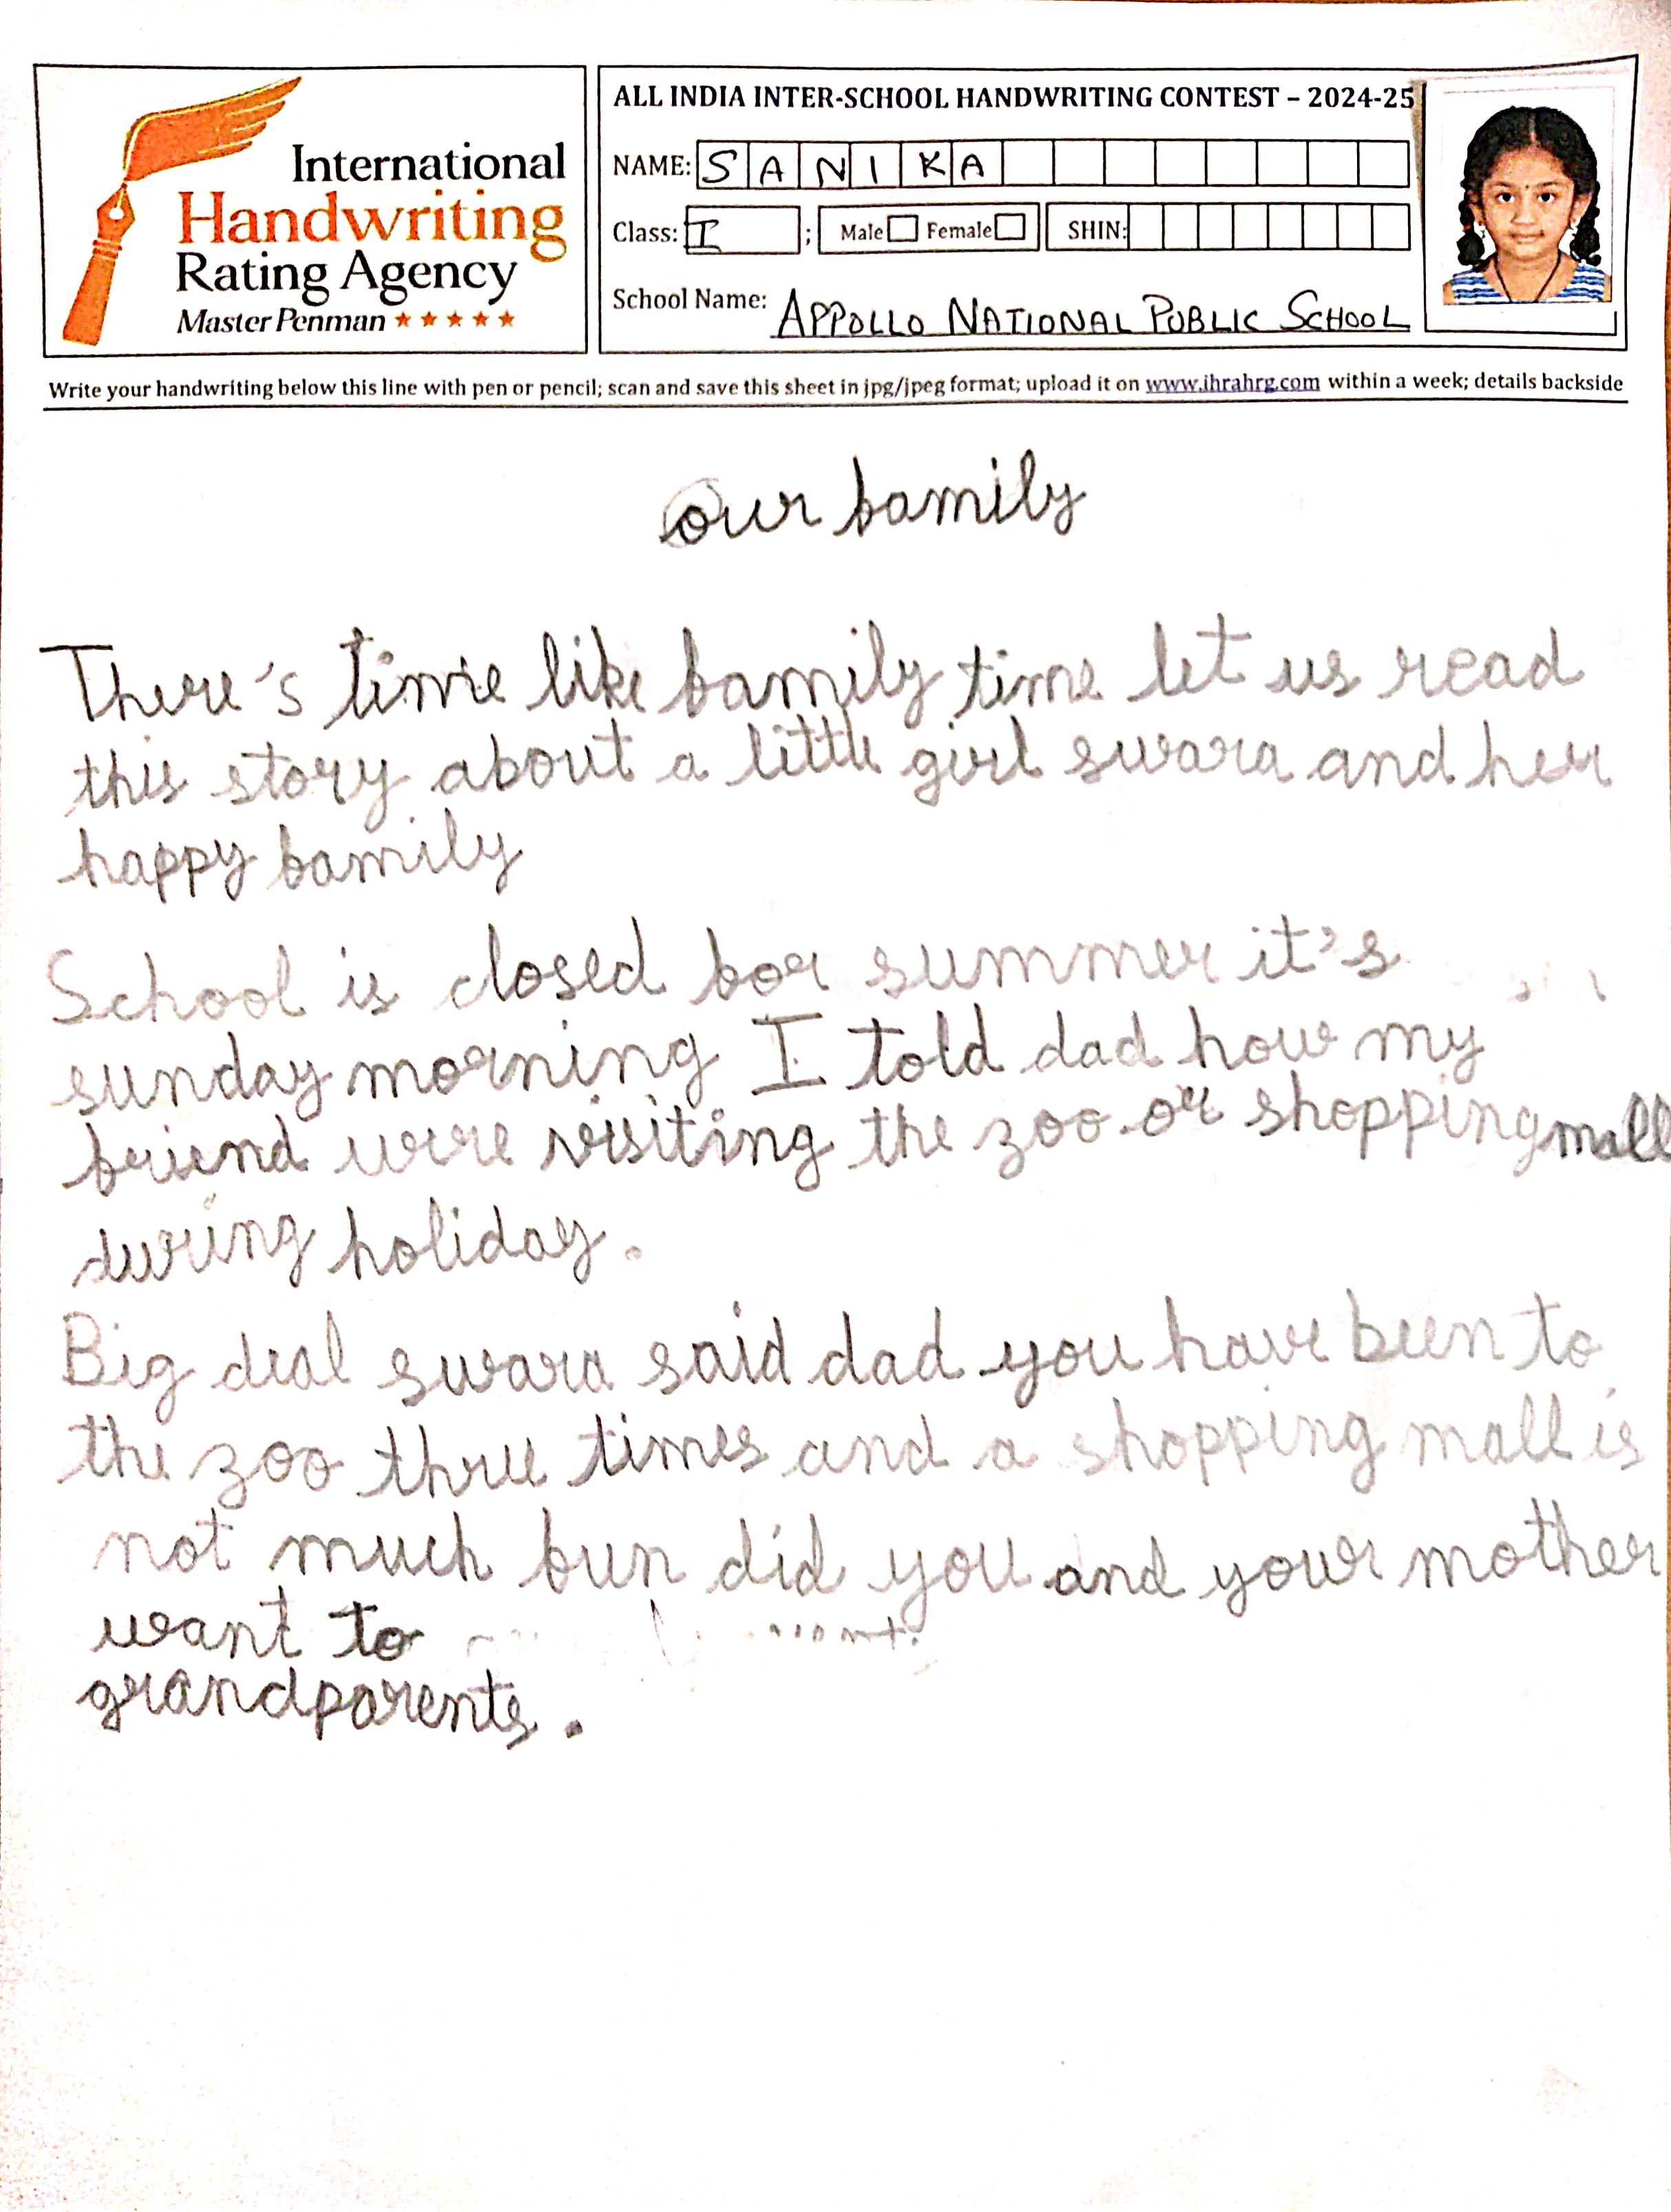 International
Handwriting
Rating Agency
Master Penman ★★★★★
ALL INDIA INTER-SCHOOL HANDWRITING CONTEST – 2024-25
NAME: SANIKA
Class: I ; Male Female SHIN:
School Name: APPOLLO NATIONAL PUBLIC SCHOOL
Write your handwriting below this line with pen or pencil; scan and save this sheet in jpg/jpeg format; upload it on www.ihrahrg.com within a week; details backside
our family
There's time like family time let us read
this story about a little girl swara and her
happy family
School is closed for summer it's
sunday morning I told dad how my
friend were visiting the zoo or shopping mall
during holiday.
Big deal swara said dad you have been to
the zoo three times and a shopping mall is
not much fun did you and your mother
want to
grandparents.